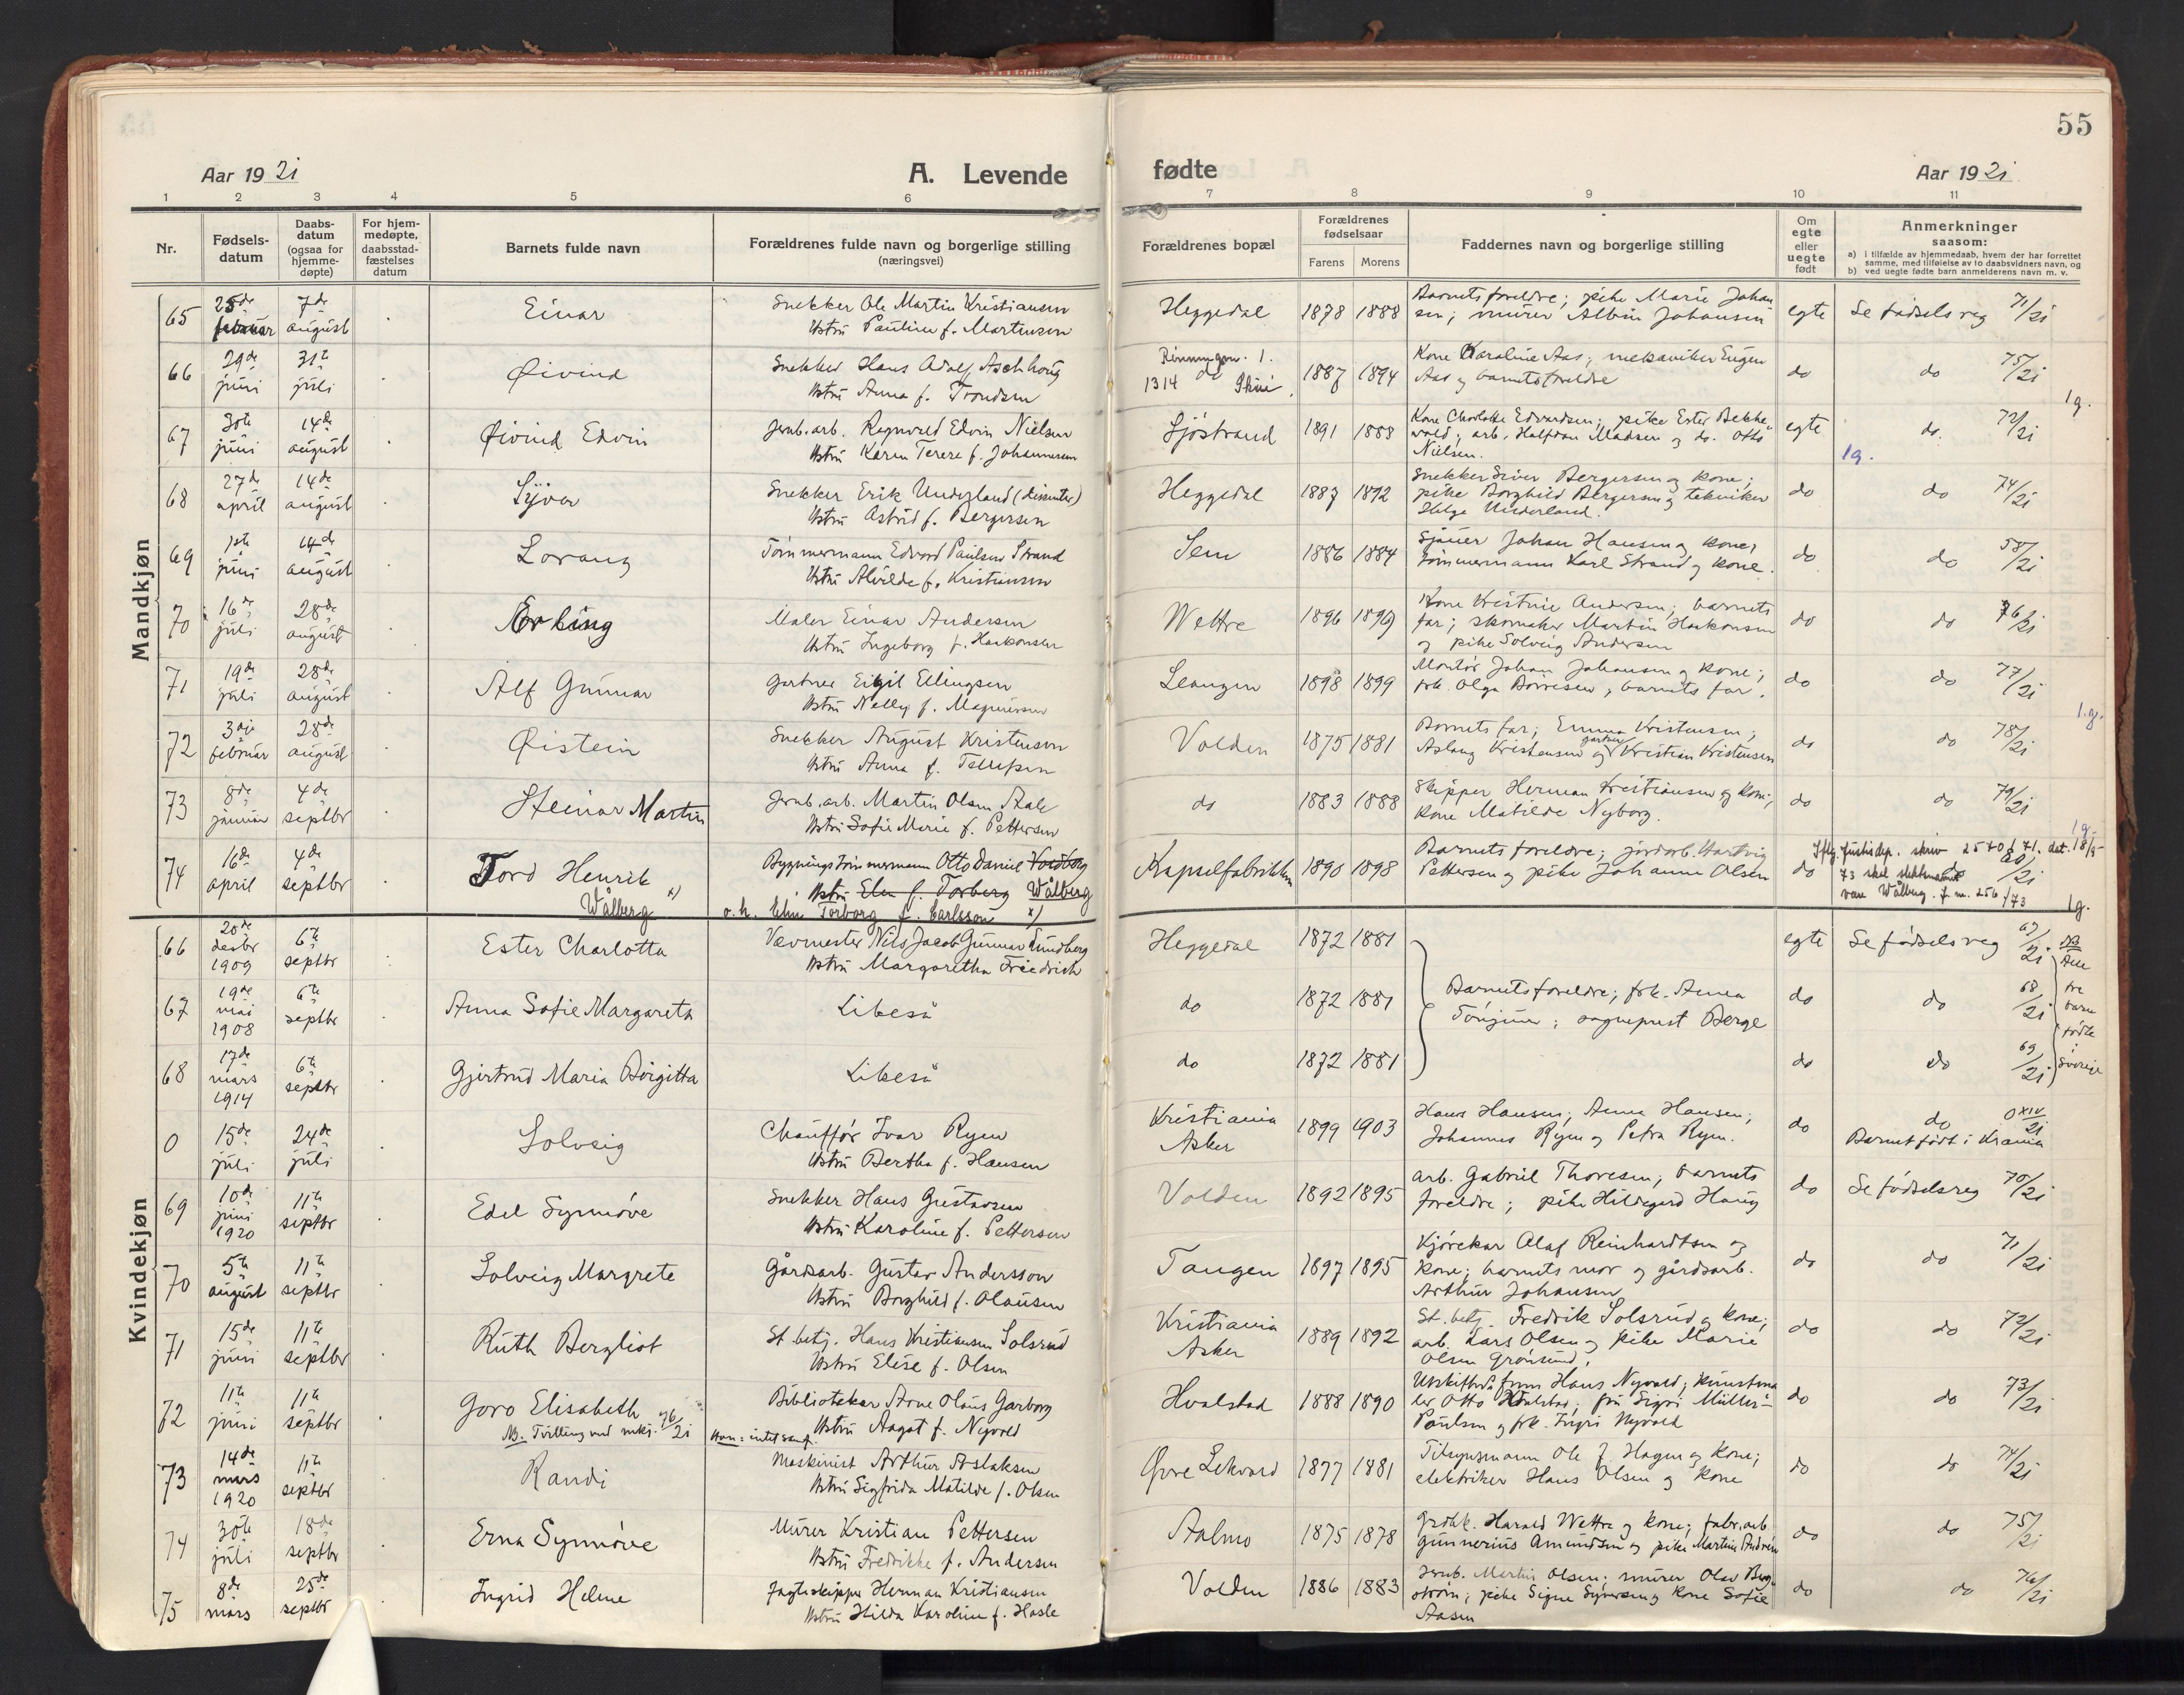 55
Aar 1921
A. Levende
fødte
Aar 1921
1 2 3 4 5 6 7 8 9 10 11
Nr.
Fødsels-
datum
Daabs-
datum
(ogsaa for
hjemme-
døpte)
For hjem-
medøpte,
daabsstad-
fæstelses
datum
Barnets fulde navn
Forældrenes fulde navn og borgerlige stilling
(næringsvei)
Forældrenes bopæl
Forældrenes
fødselsaar
Farens
Morens
Faddernes navn og borgerlige stilling
Om
egte
eller
uegte
født
Anmerkninger
saasom:
a) i tilfælde av hjemmedaab, hvem der har forrettet
samme, med tilføielse av to daabsvidners navn, og
b) ved uegte fødte barn anmelderens navn m. v.
Mandkjøn
65 25de februar 7de august Einar Snekker Ole Martin Kristiansen Hustru Pauline f. Martinsen Heggedal 1878 1888 Barnets foreldre; pike Marie Johan
sen; murer Albin Johansen egte Se fødselsreg 71/21
66 29de juni 31te juli Øivind Snekker Hans Adolf Aschhoug Hustru Anna f. Trondsen do 1314 1887 1894 Kone Karoline Aas; mekaniker Eugen
Aas og barnets foreldre do do 75/21
1g.
67 30te juni 14de august Øivind Edvin Jernb.arb. Ragnvald Edvin Nielsen Hustru Karen Terese f. Johannesen Sjøstrand 1891 1888 Kone Charlotte Edvardsen; pike Ester Bekke-
vold; arb. Halfdan Madsen og do. Otto
Nielsen. egte do. 72/21
1g.
68 27de april 14de august Syver Snekker Erik Underland (dissenter) Hustru Astrid f. Bergersen Heggedal 1887 1892 Snekker Siver Bergersen og kone;
pike Borghild Bergersen og tekniker
Helge Underland. do do 74/21
69 1ste juni 14de august Lorang Tømmermann Edvard Paulsen Strand Hustru Alvilde f. Kristiansen Sem 1886 1884 Sjauer Johan Hansen og kone;
tømmermann Karl Strand og kone. do do 58/21
70 16de juli 28de august Erling Maler Einar Andersen Hustru Ingeborg f. Haakonsen Wettre 1896 1899 Kone Kristine Andersen; barnets
far; skomaker Martin Haakonsen
og pike Solveig Andersen do do 76/21
71 19de juli 28de august Alf Gunnar Gartner Eigil Ellingsen Hustru Nelly f. Magnussen Leangen 1898 1899 Montør Johan Johansen og kone;
frk. Olga Børresen; barnets far. do do 77/21
1.g.
72 3dje februar 28de august Øistein Snekker August Kristensen Hustru Anna f. Tellefsen Volden 1875 1881 Barnets far; Emma Kristensen;
Aslaug Kristensen og gartner Kristian Kristensen do do 78/21
73 8de januar 4de septbr Steinar Martin Jernb.arb. Martin Olsen Hustru Sofie Marie f. Pettersen do 1883 1888 Skipper Herman Kristiansen og kone;
kone Matilde Nyborg. do do 79/21
1g.
74 16de april 4de septbr Tord Henrik
Wålberg x) Bygningstømmermann Otto Daniel Wålberg
Hustru Elin f. Torborg
o.h. Elin Torborg f. Carlsson x) Kapselfabrikken 1890 1898 Barnets foreldre; jordarb. Hartvig
Pettersen og pike Johanne Olsen do do 80/21
Iflg. Justisdep. skriv 2540/71. dat. 18/5
73 skal slektsnavnet
være Wålberg. J.nr. 256/73
1g.
Kvindekjøn
66 20de desbr 1909 6te septbr Ester Charlotta Vævmester Nils Jacob Gunnar Lundberg Hustru Margaretha Friedrich Heggedal 1872 1881 egte Se fødselsreg 67/21
67 19de mai 1908 6te septbr Anna Sofie Margareta Likeså do 1872 1881 Barnets foreldre; frk. Anna
; sogneprest Berge do do 68/21
68 17de mars 1914 6te septbr Gjertrud Maria Birgitta Likeså do 1872 1881 do do 69/21
NB
Alle
tre
barn
fødte
i
Sverige
0 15de juli 24de juli Solveig Chauffør Ivar Ryen Hustru Bertha f. Hansen Kristiania
Asker 1899 1903 Hans Hansen; Anna Hansen;
Johannes Ryen og Petra Ryen. do do 0 XIV/21
Barnet født i Krania
69 10de juni 1920 11te septbr Edel Synnøve Snekker Hans Gustavsen Hustru Karoline f. Pettersen Volden 1892 1895 arb. Gabriel Thoresen; barnets
foreldre; pike Hildegard Haug do Se fødselsreg 70/21
70 5te august 11te septbr Solveig Margrete Gårdsarb. Gustav Andersson Hustru Borghild f. Olausen Tangen 1897 1895 Kjørekar Olaf Reinhardtsen og
kone; barnets mor og gårdsarb.
Arthur Johansen do do 71/21
71 15de juni 11te septbr Ruth Bergliot St. betj. Hans Kristiansen Solsrud Hustru Elise f. Olsen Kristiania
Asker 1889 1892 St. betj. Fredrik Solsrud og kone;
arb. Lars Olsen og pike Marie
Olsen Grønsund. do do 72/21
72 11te juni 11te septbr Goro Elisabeth
NB. Tvilling med mkj. 76/21 Bibliotekar Arne Olaus Garborg Hustru Aagot f. Nyvold Hvalstad 1888 1890 Hans Nyvold; kunstma
ler Otto Valstad; fru Sigri Müller-
Paulsen og frk. Ingri Nyvold do do 73/21
73 14de mars 1920 11te septbr Randi Maskinist Arthur Aslaksen Hustru Sigfrida Matilde f. Olsen Øvre Lekvard 1877 1881 Tilsynsmann Ole J. Hagen og kone;
elektriker Hans Olsen og kone do do 74/21
74 30te juli 18de septbr Erna Synnøve Murer Kristian Pettersen Hustru Fredrikke f. Andersen Aalmo 1875 1878 Grdbk. Harald Wettre og kone; fabr.arb.
Gunnerius Amundsen og pike Martine do do 75/21
75 8de mars 25de septbr Ingrid Helene Jagteskipper Herman Kristiansen Hustru Hilda Karoline f. Hasle Volden 1886 1883 Jernb. Martin Olsen; murer Olav Berg-
strøm; pike Signe Syversen og kone Sofie
Aasen do do 76/21